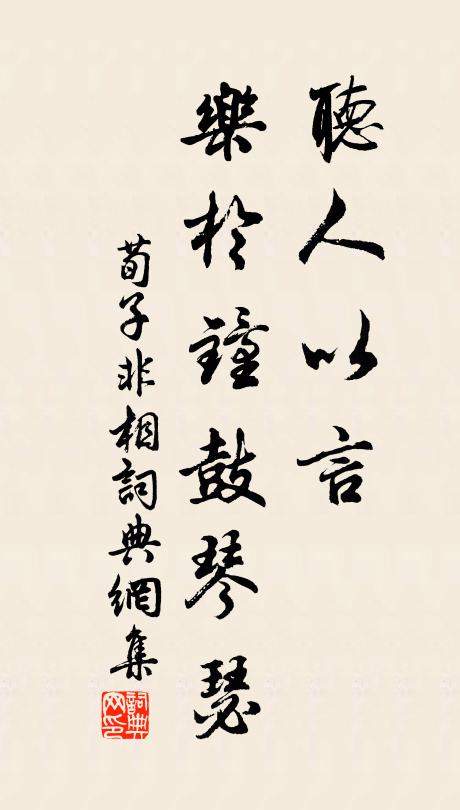 聽人以言
樂於鐘鼓琴瑟
荀子非相詞典網集
詞典
网印